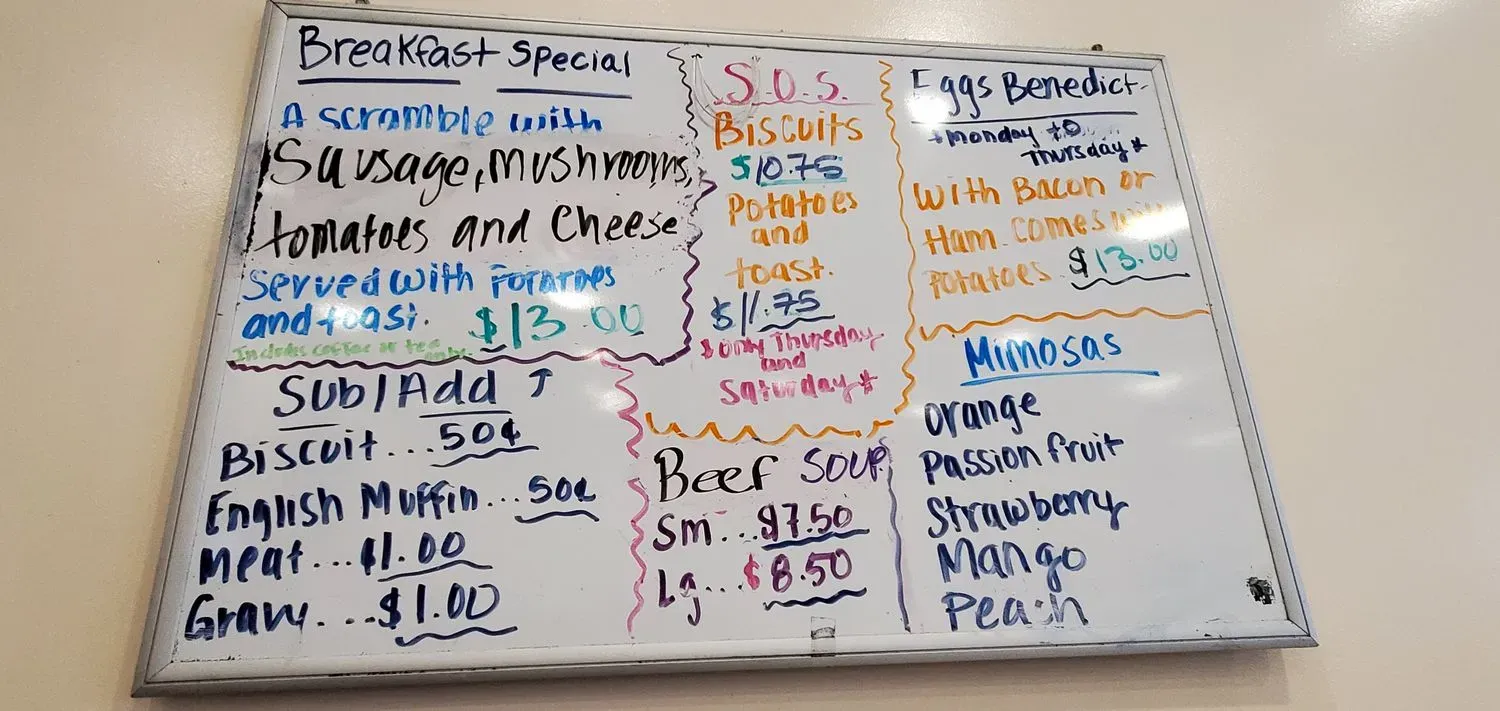 Breakfast Special
A scramble with
Sausage, mushrooms,
tomatoes and Cheese
Served with Potatoes
and toast. $13.00
Includes coffee or tea only.
Sub/Add ↑
Biscuit...50¢
English Muffin...50¢
Meat...$1.00
Gravy...$1.00
S.O.S.
Biscuits
$10.75
Potatoes
and
toast.
$11.75
* only Thursday
and
Saturday *
Beef Soup
Sm...$7.50
Lg...$8.50
Eggs Benedict
*Monday to
Thursday*
With Bacon or
Ham. Comes with
Potatoes $13.00
Mimosas
Orange
Passion fruit
Strawberry
Mango
Peach